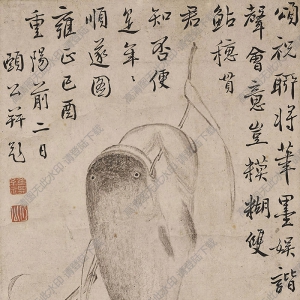 頌祝聊將筆墨娛諧
聲會意豈模糊雙
鮎穗貫
君
知否便
是年年
順遂圖
雍正己酉
重陽前二日
頤公并題